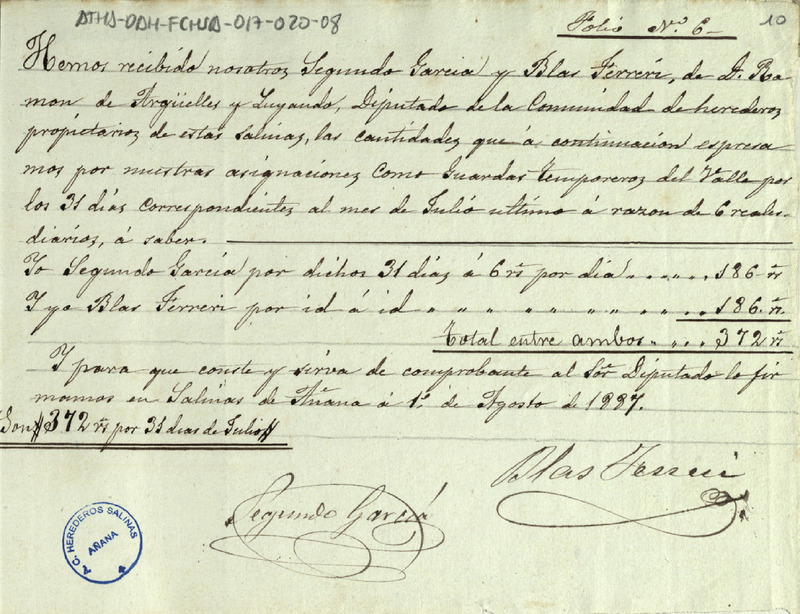 ATHA-DAH-FCHSA-017-020-08
Folio N.º 6-
10
Hemos recibido nosotros Segundo Garcia y Blas Ferreri, de D. Ra
mon de Argüelles y Luyando, Diputado de la Comunidad de herederos
propietarios de estas Salinas, las cantidades que á continuacion espresa
mos por nuestras asignaciones como Guardas temporeros del Valle por
los 31 dias correspondientes al mes de Julio ultimo á razon de 6 reales
diarios, á saber.
Yo Segundo Garcia por dichos 31 dias á 6 rs por dia 186 - rs
Y yo Blas Ferreri por id á id " " " " " " " 186 - rs.
Total entre ambos 372 rs
Y para que conste y sirva de comprobante al Sor Diputado lo fir
mamos en Salinas de Añana á 1º de Agosto de 1887.
Son # 372 rs por 31 dias de Julio #
Blas Ferreri
Segundo Garcia
A. C. HEREDEROS SALINAS
AÑANA